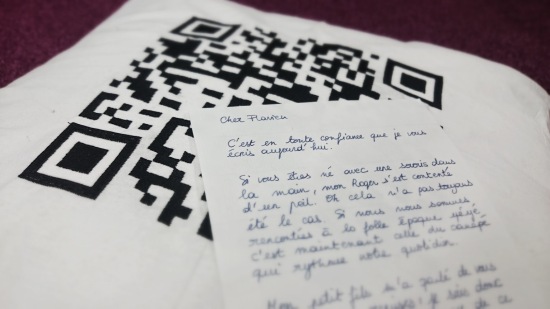 Cher Flavien
C'est en toute confiance que je vous
écris aujourd'hui.
Si vous êtes né avec une souris dans
la main, mon Roger s'est contenté
d'un poil. Oh cela n'a pas toujours
été le cas. Si nous nous sommes
rencontrés à la folle époque yéyé
c'est maintenant celle du canapé
qui rythme notre quotidien.
Mon petit fils m'a parlé de vous
je suis donc
de ce